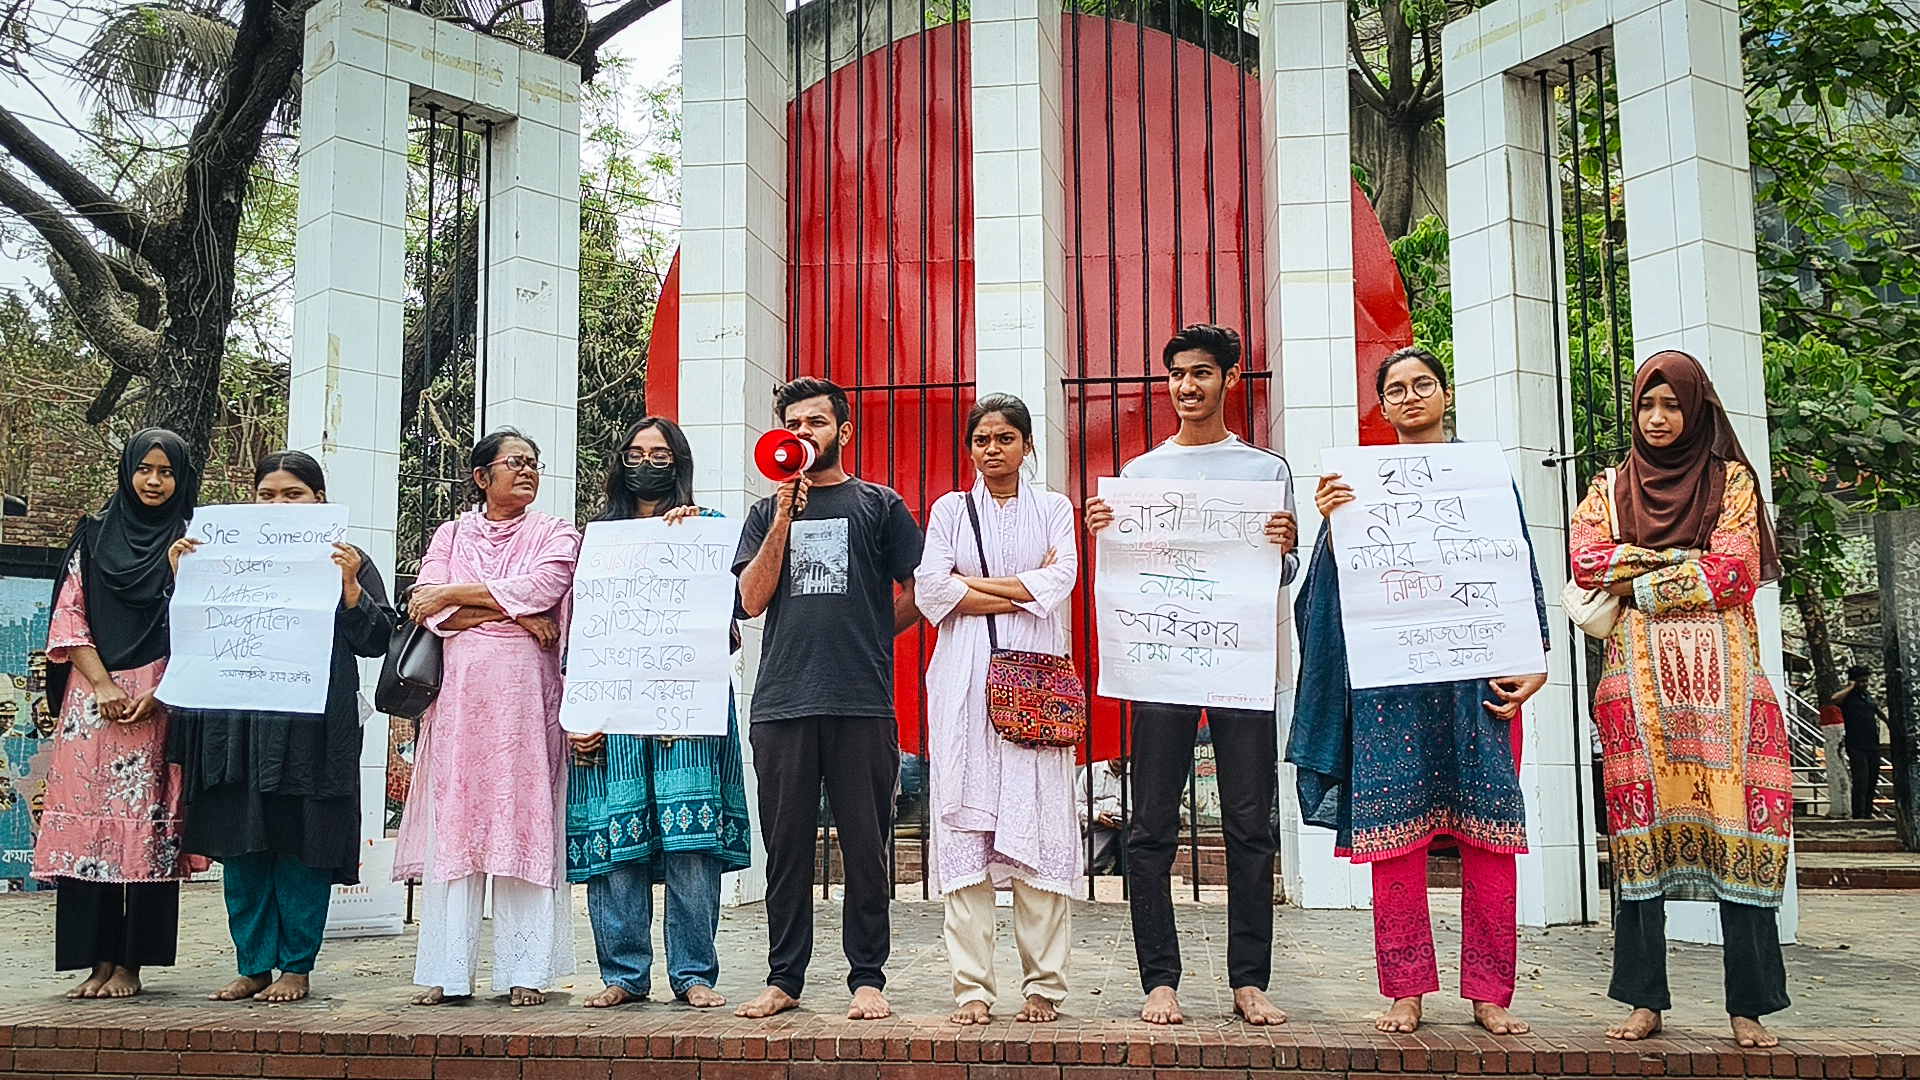 She Someone's
Sister,
Mother,
Daughter
Wife
সমাজতান্ত্রিক ছাত্র ফ্রন্ট
নারীর মর্যাদা
সমানাধিকার
প্রতিষ্ঠার
সংগ্রামকে
বেগবান করুন
SSF
নারী দিবসে
নারীর
অধিকার
রক্ষা কর।
ঘরে-
বাইরে
নারীর নিরাপত্তা
নিশ্চিত কর
সমাজতান্ত্রিক
ছাত্র ফ্রন্ট
TWELVE
CLOTHING